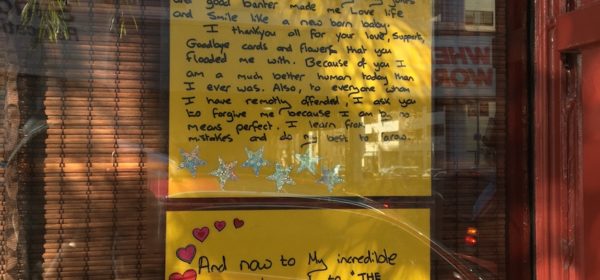 and good banter made me Love life
and Smile like a new born baby.
I thankyou all for your love, Support,
Goodbye cards and flowers that you
Flooded me with. Because of you I
am a much better human today than
I ever was. Also, to everyone whom
I have remotly offended, I ask you
to forgive me because I am by no
means perfect. I learn from
mistakes and do my best to grow.
And now to My incredible
to "THE
WHE
WOR